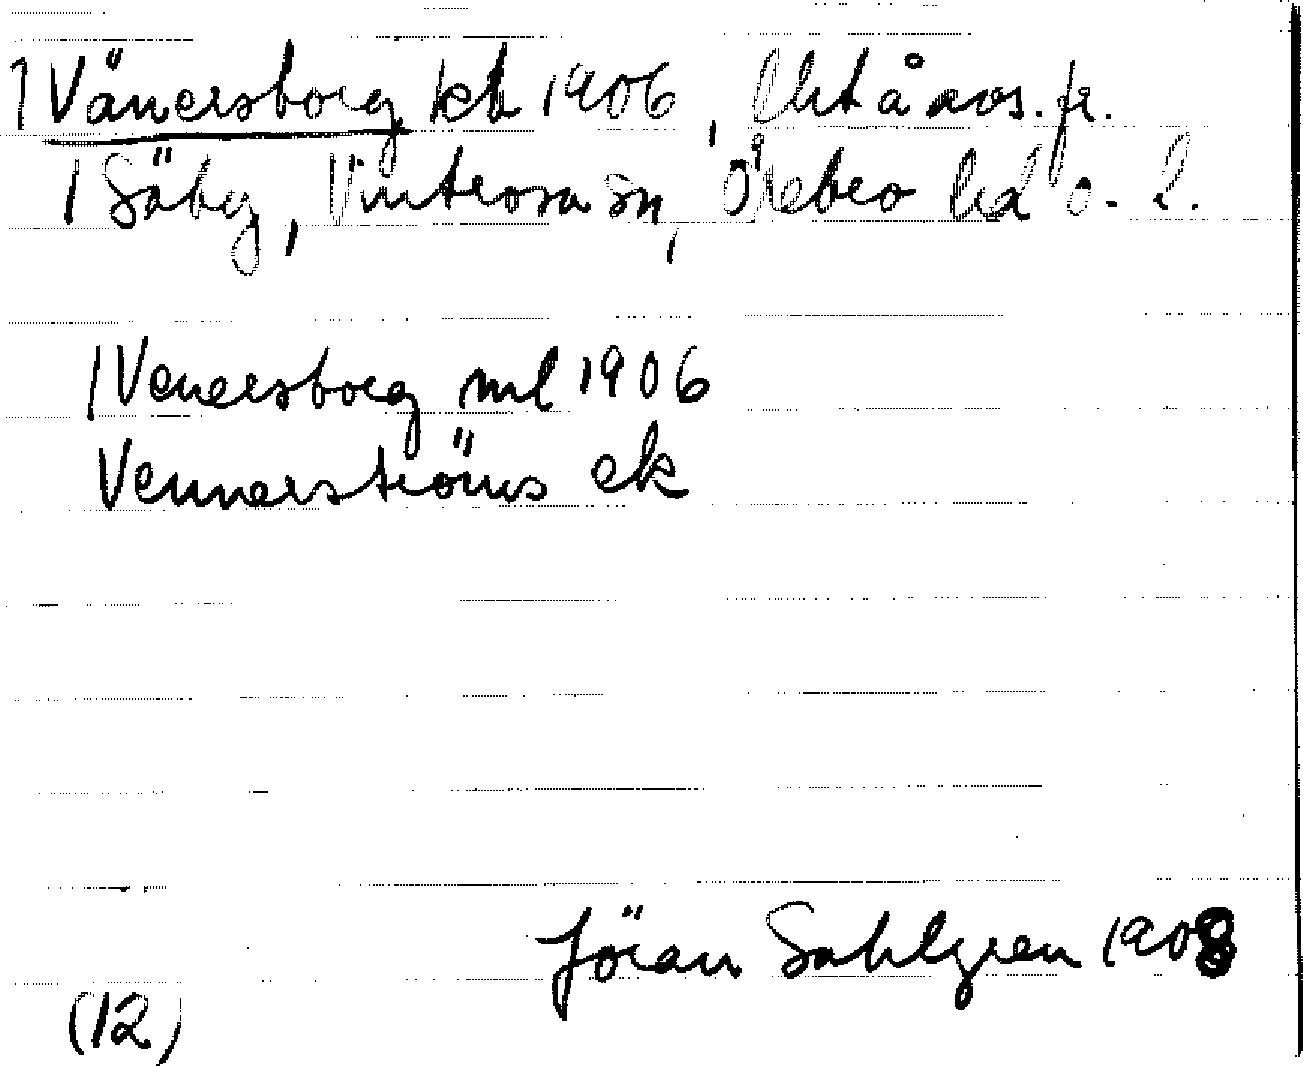 1 Vänersborg kb 1906, Cht å avs. fr.
1 Säby, Vintrosa sn, Örebro hd o. l.
1 Venersborg ml 1906
Vennerströms ek
Jöran Sahlgren 1908
(12)